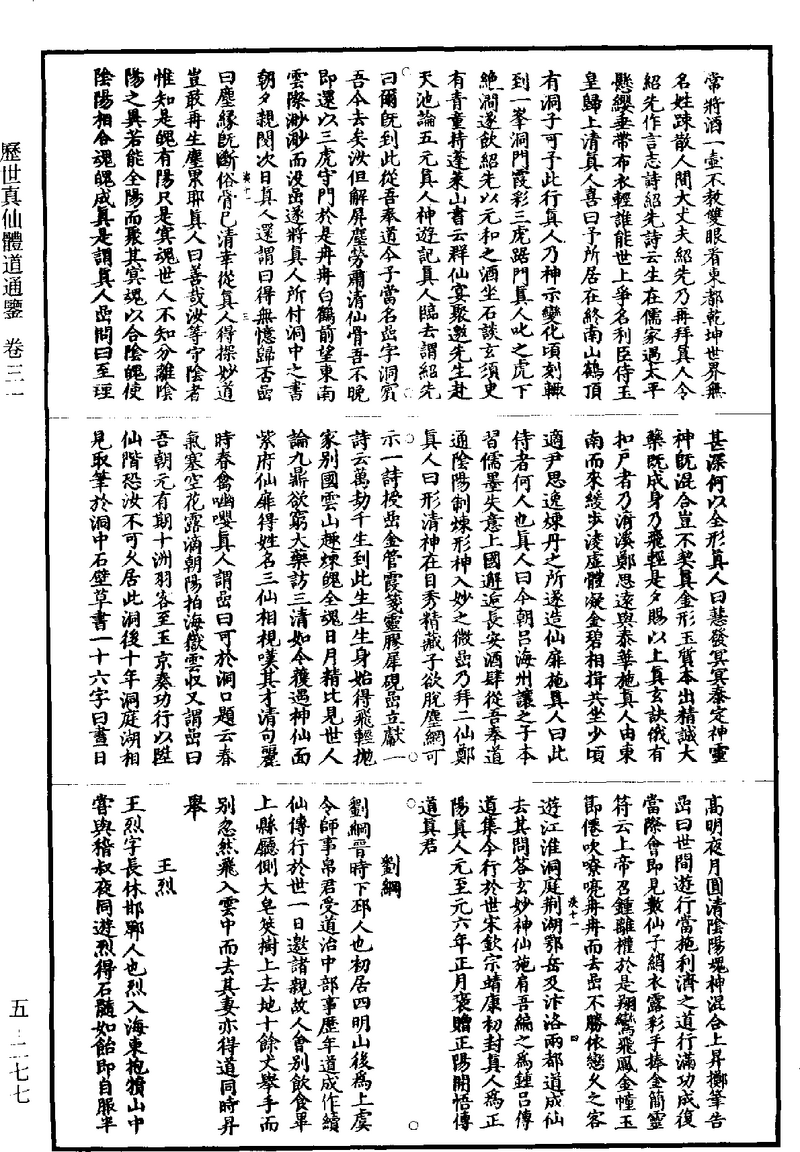 常將酒一壺不教雙眼看東都乾坤世界無
名姓疎散人間大丈夫紹先乃再拜真人令
紹先作言志詩紹先詩云生在儒家遇太平
懸纓垂帶布衣輕誰能世上爭名利臣侍玉
皇歸上清真人喜曰予所居在終南山鶴頂
有洞子可予此行真人乃神示變化頃刻輙
到一峯洞門霞彩三虎踞門真人叱之虎下
絶澗遂飲紹先以元和之酒坐石談玄須臾
有青童持蓬萊山書云群仙宴聚邀先生赴
天池論五元真人神遊記真人臨去謂紹先
曰爾既到此從吾奉道今子當名嵒字洞賓
吾今去矣汝但解屏塵勞肅清仙骨吾不晚
即還以三虎守門於是冉冉白鶴前望東南
雲際渺渺而没嵒遂將真人所付洞中之書
朝夕親閲次日真人還謂曰得無憶歸否嵒
曰塵縁既斷俗骨已清幸從真人得探妙道
豈敢再生塵累耶真人曰善哉汝等守陰者
惟知是魄有陽只是冥魂世人不知分離陰
陽之異若能全陽而聚其冥魂以合陰魄使
陰陽相合魂魄成真是謂真人嵒問曰至理
甚深何以全形真人曰慧發冥冥泰定神靈
神既混合豈不契真金形玉質本出精誠大
藥既成身乃飛輕是夕賜以上真玄訣俄有
扣戶者乃淸溪鄭思遠與泰華施真人由東
南而來緩步淩虛體凝金碧相揖共坐少頃
適尹思逸煉丹之所遂造仙扉施真人曰此
侍者何人也真人曰今朝呂海州讓之子本
習儒墨失意上國邂逅長安酒肆從吾奉道
通陰陽制煉形神入妙之微嵒乃拜二仙鄭
真人曰形清神在目秀精藏子欲脫塵網可
示一詩授嵒金管霞箋靈膠犀硯嵒立獻一
詩云萬劫千生到此生生生身始得飛輕抛
家别國雲山趣煉魄全魂日月精比見世人
論九鼎欲窮大藥訪三清如今獲遇神仙面
紫府仙扉得姓名三仙相視嘆其才清句麗
時春禽嚙嚶真人謂嵒曰可於洞口題云春
氣塞空花露滴朝陽拍海嶽雲収又謂嵒曰
吾朝元有期十洲羽客至玉京奏功行以陞
仙階恐汝不可久居此洞後十年洞庭湖相
見取筆於洞中石壁草書一十六字曰晝日
高明夜月圓清陰陽塊神混合上昇擲筆告
嵒曰世間遊行當施利濟之道行滿功成復
當際會即見數仙子綃衣露彩手捧金簡靈
符云上帝召鍾離權於是翔鸞飛鳳金幢玉
節僊吹嘹喨冉冉而去嵒不勝依戀久之客
遊江淮洞庭荆湖鄂岳及汴洛兩都道成仙
去其問答玄妙神仙施肩吾編之為鍾呂傳
道集今行於世宋欽宗靖康初封真人為正
陽真人元至元六年正月褒贈正陽開悟傳
道真君
劉綱
劉綱晋時下邳人也初居四明山後為上虞
令師事帛君受道治中部事歷年道成作續
仙傳行於世一日邀諸親故人會别飲食畢
上縣廳側大皂莢樹上去地十餘丈舉手而
别忽然飛入雲中而去其妻亦得道同時昇
舉
王烈
王烈字長休邯鄲人也烈入海東抱犢山中
嘗與稽叔夜同遊烈得石髓如飴即自服半
歷世真仙體道通鑒 卷三一
五-二七七